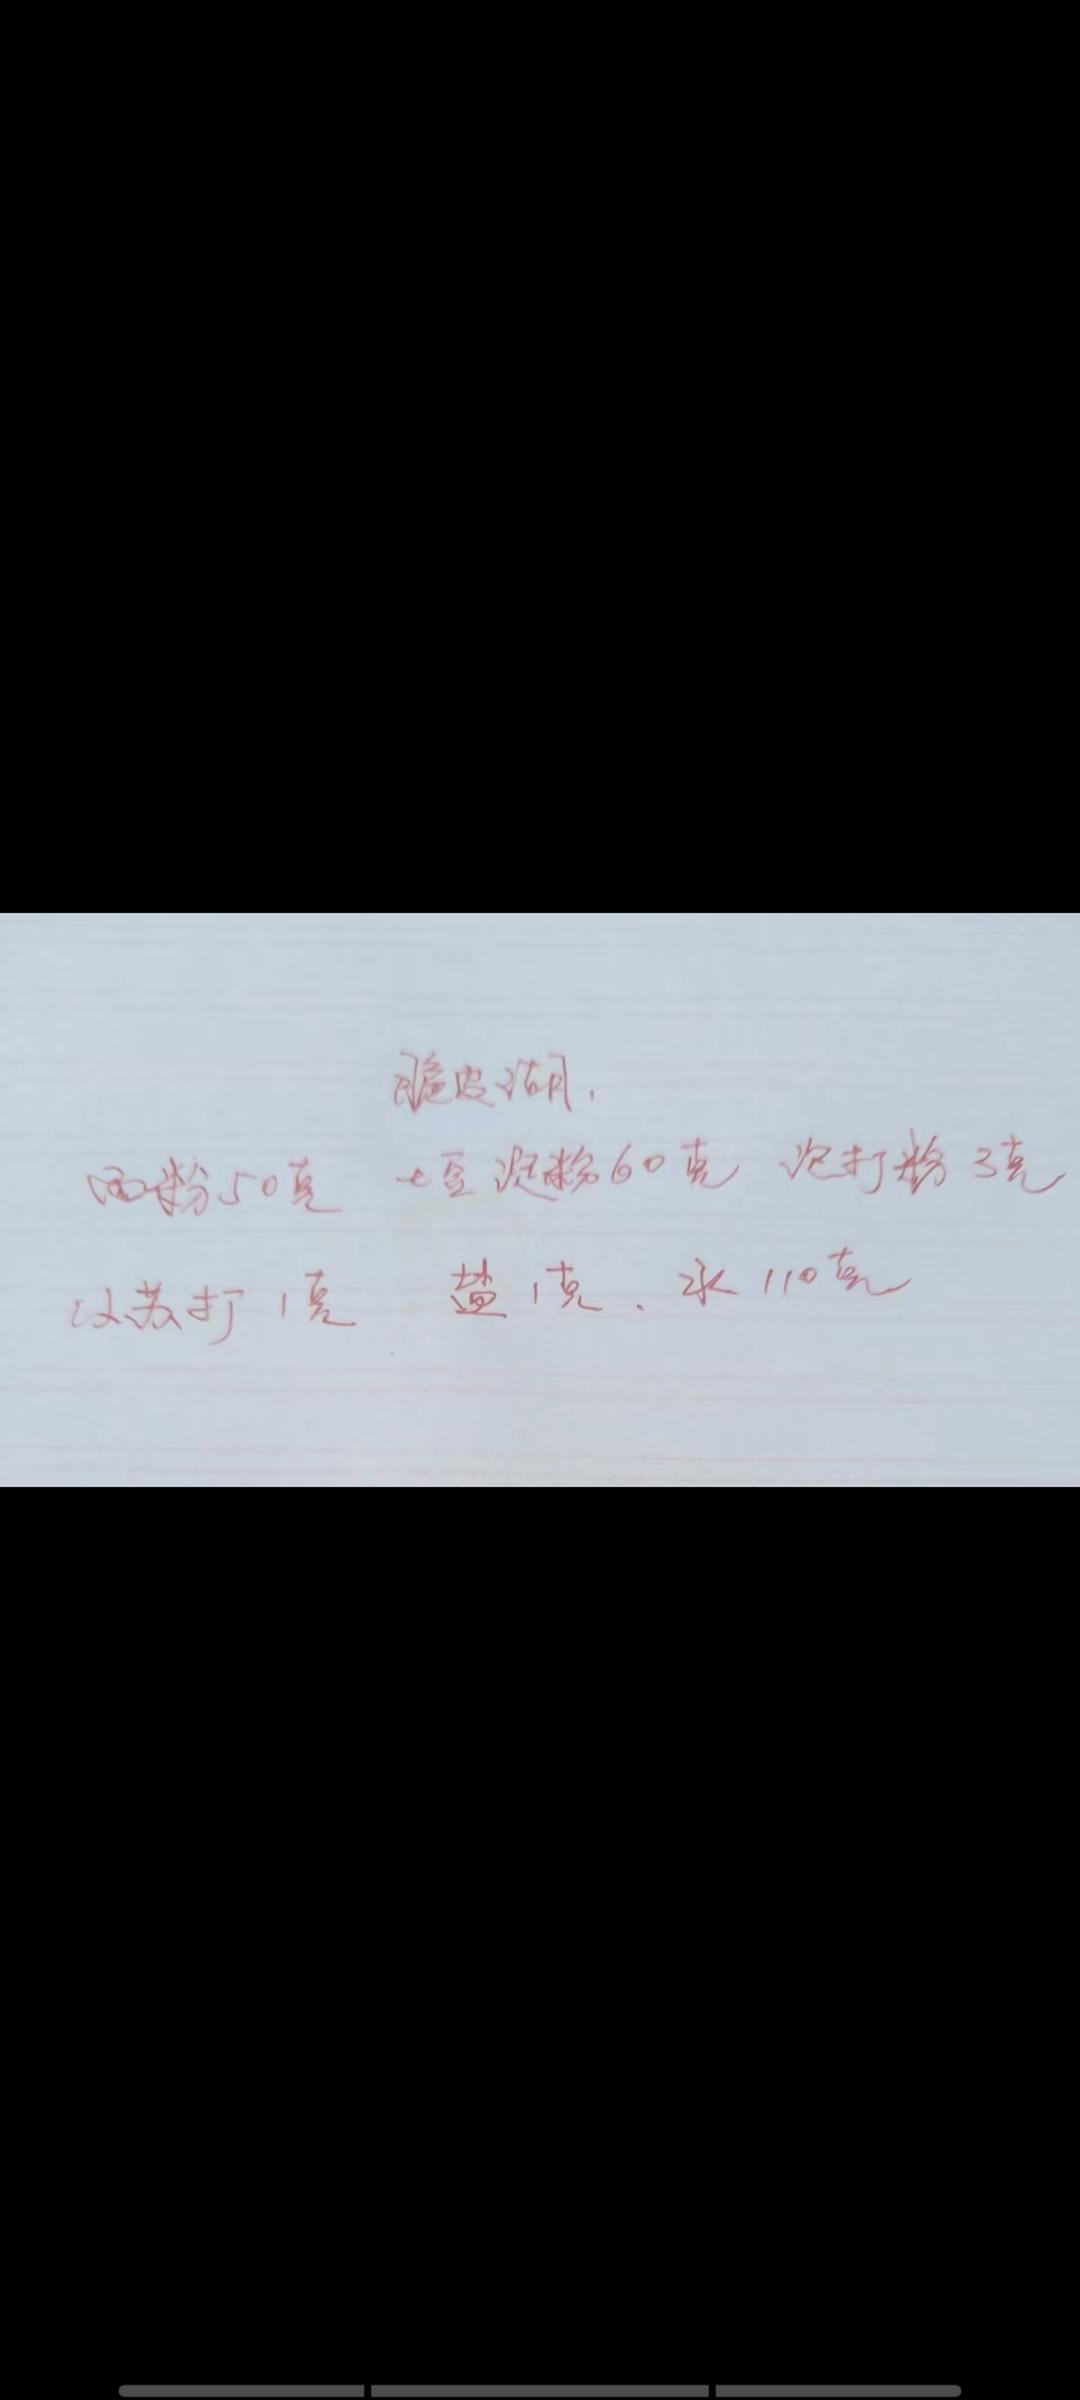 脆皮湖.
面粉50克 土豆淀粉60克 泡打粉3克
小苏打1克 盐1克. 水110克